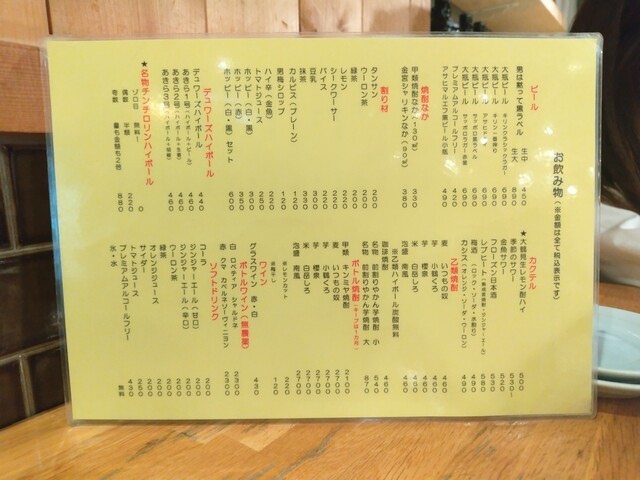 お飲み物（※金額は全て税込表示です）
ビール
男は黙って黒ラベル 生中 450
生大 890
大瓶ビール キリンクラシックラガー 690
大瓶ビール キリン一番搾り 690
大瓶ビール アサヒ 690
大瓶ビール サッポロ黒ラベル 690
大瓶ビール サッポロラガー赤星 690
プレミアムアルコールフリー 420
アサヒマルエフ黒ビール小瓶 490
焼酎なか
甲類焼酎なか（130㎖） 330
金宮シャリキンなか（90㎖） 380
割り材
タンサン 200
ウーロン茶 200
緑茶 200
レモン 200
シークワーサー
バイス 220
豆乳 330
抹茶 330
カルピス（プレーン） 120
男梅シロップ 120
ハイ辛（金魚） 220
トマトジュース 250
ホッピー（白・黒） 300
ホッピー（赤） 350
ホッピー（白・黒）セット 600
デュワーズハイボール
デュワーズハイボール 440
あきら1号（ハイボール＋ビール） 460
あきら2号（ハイボール＋生姜） 460
あきら3号（ハイボール＋胡椒） 460
★名物チンチロリンハイボール
ゾロ目 無料！ 0
偶数 半額 220
奇数 量も金額も2倍 880
カクテル
★大鶴見生レモン酎ハイ 500
季節のサワー 530～
金魚サワー 520
フローズン日本酒 530
レブビート（熟成常陸野・ジンジャーエール） 580
梅酒（ロック・ソーダ・水割り） 490
カシス（オレンジ・ソーダ・ウーロン） 490
乙類焼酎
麦 いつもの奴 460
芋 小鶴くろ 460
芋 櫻泉 460
米 白岳しろ 460
泡盛 南風 460
※乙類ハイボール炭酸無料
珈琲焼酎 460
名物 前割りやかん芋焼酎 小 540
名物 前割りやかん芋焼酎 大 870
ボトル焼酎 -キープは一カ月-
甲類 キンミヤ焼酎 2100
麦 いつもの奴 2700
芋 小鶴くろ 2700
芋 櫻泉 2700
米 白岳しろ 2700
泡盛 南風 2700
※レモンカット 220
※梅干し 120
ワイン
グラスワイン 赤・白 430
ボトルワイン（無農薬）
白 ロベティア シャルドネ 2300
赤 クマ カベルネソーヴィニヨン 2300
ソフトドリンク
コーラ 200
ジンジャーエール（甘口） 200
ジンジャーエール（辛口） 200
ウーロン茶 200
緑茶 200
オレンジジュース 200
サイダー 200
トマトジュース 250
プレミアムアルコールフリー 430
氷・水 無料